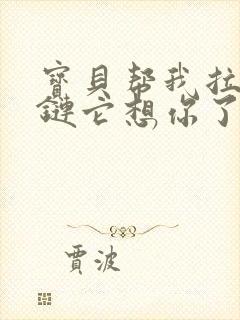 寶貝幫我拉
鏈它想你了
賈波